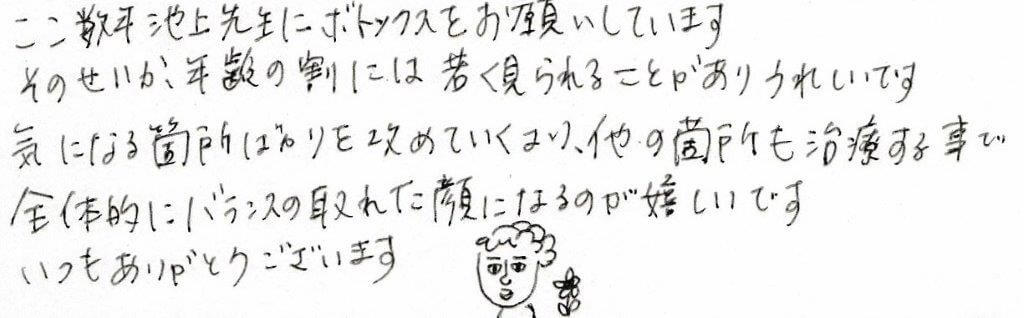 ここ数年池上先生にボトックスをお願いしています
そのせいか、年齢の割には若く見られることがありうれしいです
気になる箇所ばかりを攻めていくより、他の箇所も治療する事で
全体的にバランスの取れた顔になるのが嬉しいです
いつもありがとうございます